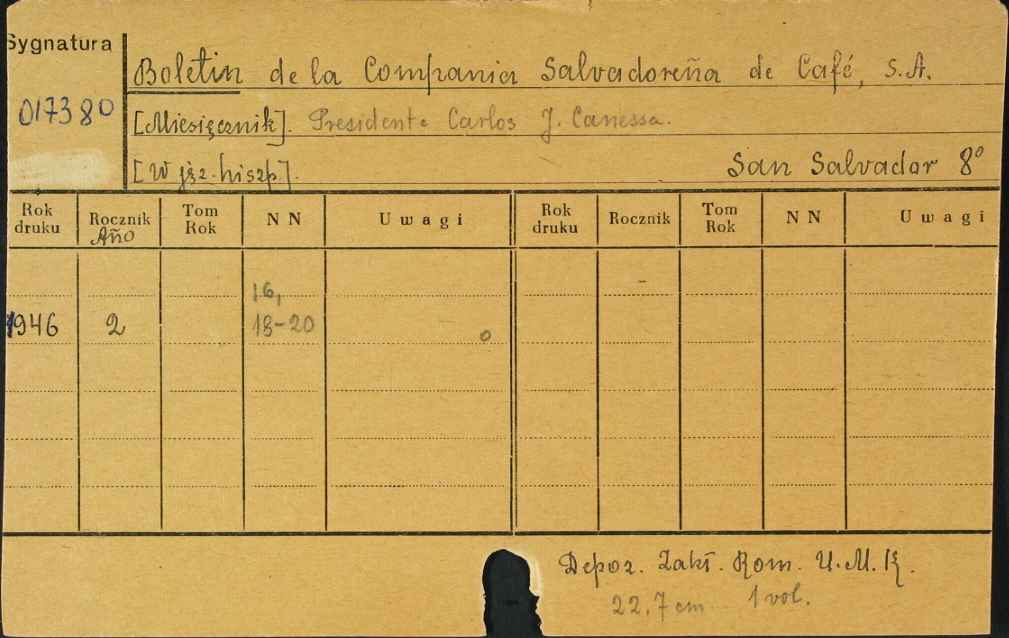 Sygnatura
Boletin de la Compania Salvadoreña de Café, S.A.
017380
[Miesięcznik]. Presidente Carlos J. Canessa.
[W jęz. hiszp.]. San Salvador 8°
Rok druku Rocznik Tom Rok NN Uwagi Rok druku Rocznik Tom Rok NN Uwagi
Año
16,
1946 2 18-20 o
Depoz. Zakł. Rom. U.M.K.
22,7 cm 1 vol.